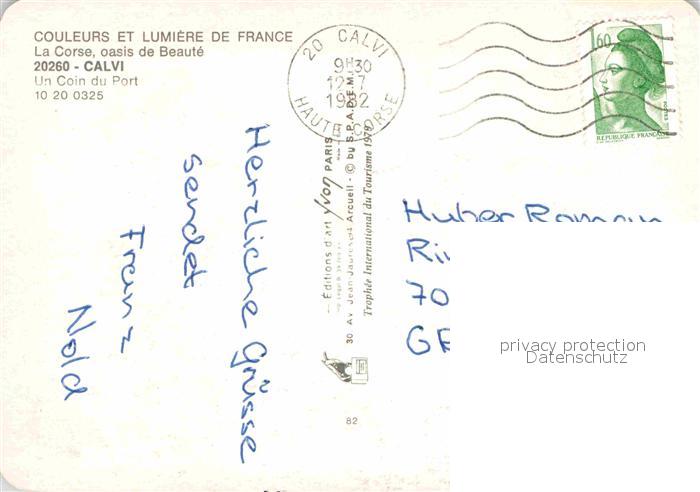 COULEURS ET LUMIÈRE DE FRANCE
La Corse, oasis de Beauté
20260 - CALVI
Un Coin du Port
10 20 0325
20 CALVI
9H30
12-7
1982
HAUTE CORSE
1,60
POSTES
REPUBLIQUE FRANÇAISE
Herzliche Grüsse
sendet
Franz
Nold
Éditions d'art Yvon PARIS
30 Av. Jean Jaurès 94 Arcueil - © by S.P.A.D.E.M.
Trophée International du Tourisme 1978
82
Huber Roman
70
privacy protection
Datenschutz